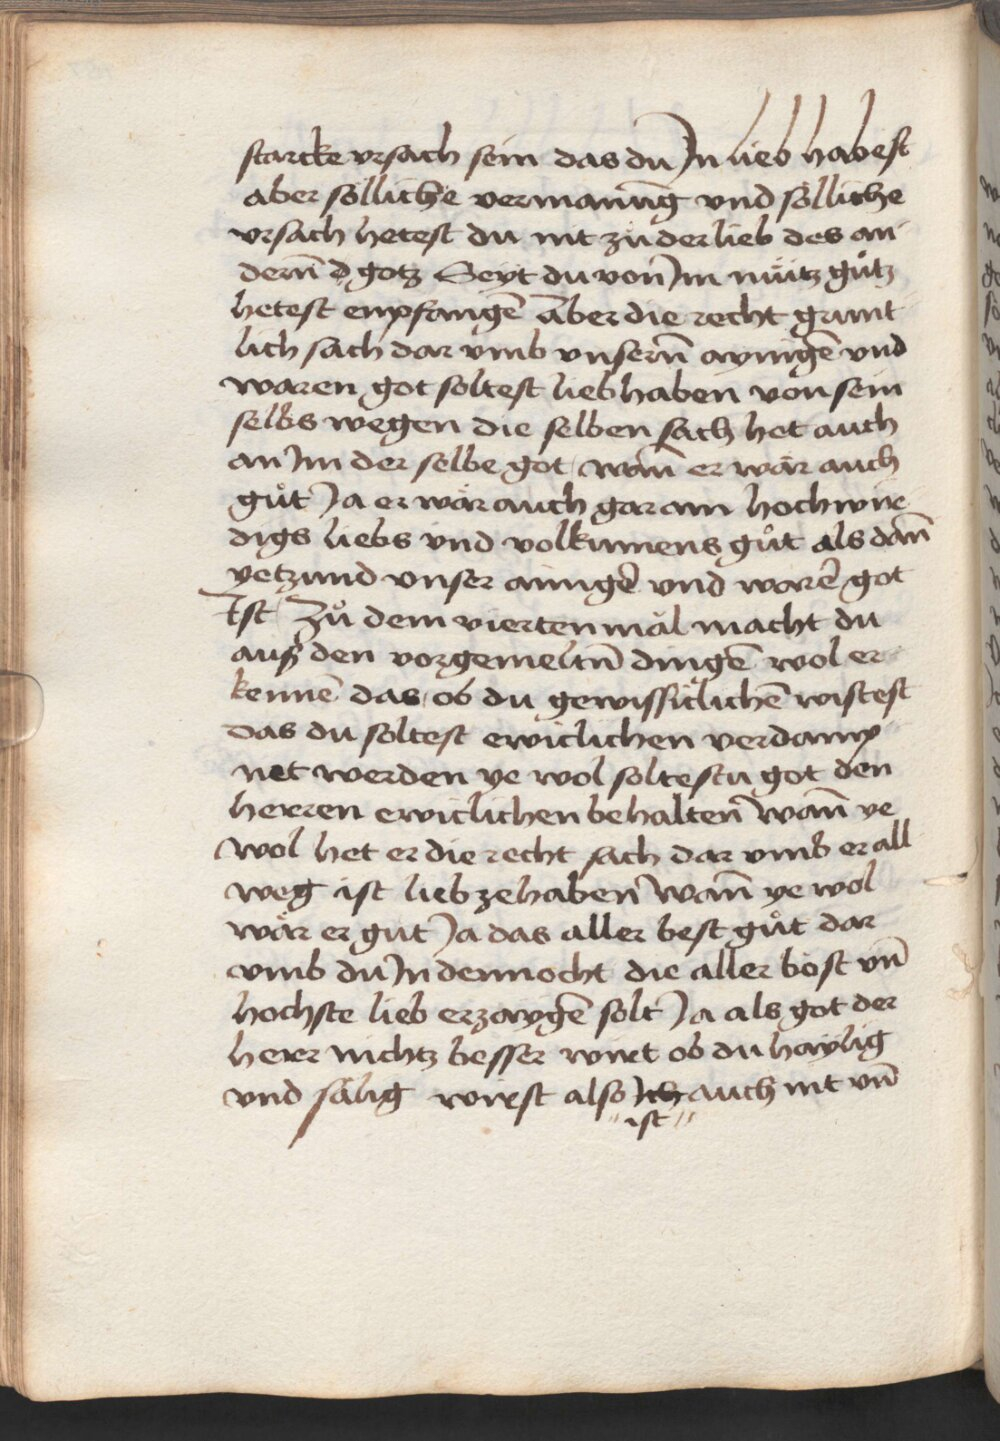 starcke vrsach sein das du Jn lieb habest
aber sölliche vermanūg vnd sölliche
vrsach hetest du nit zu der lieb des an
derñ gotz Seyt du von Jm nütz gůtz
hetest enpfangē aber die recht grunt
lich sach dar vmb vnserñ aynigē vnd
waren got soltest lieb haben von sein
selbs wegen die selben sach het auch
an Jm der selbe got wañ er wär auch
gůt Ja er wär auch gar ain hochwir
digs liebs vnd volkumens gůt als dañ
yetzund vnser ainigē vnd warē got
Ist Zů dem vierten mäl macht du
auß den vorgemeltñ dingē wol er
kennē das ob du gewissiclichē wistest
das du soltest ewiclichen verdamp
net werden ye wol soltestu got den
herren ewiclichen behalteñ wañ ye
wol het er die recht sach dar vmb er all
weg ist lieb zehabeñ wañ ye wol
wär er gut Ja das aller best gůt dar
vmb du Jn dennocht die aller böst vñ
hochste lieb erzaygē solt Ja als got der
herr nichtz besser wirt ob du haylig
vnd sälig wirst also Ich auch nit vñ
ist